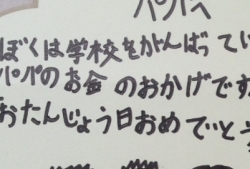 パパへ
ぼくは学校をがんばってい
パパのお金のおかげです
おたんじょう日おめでと